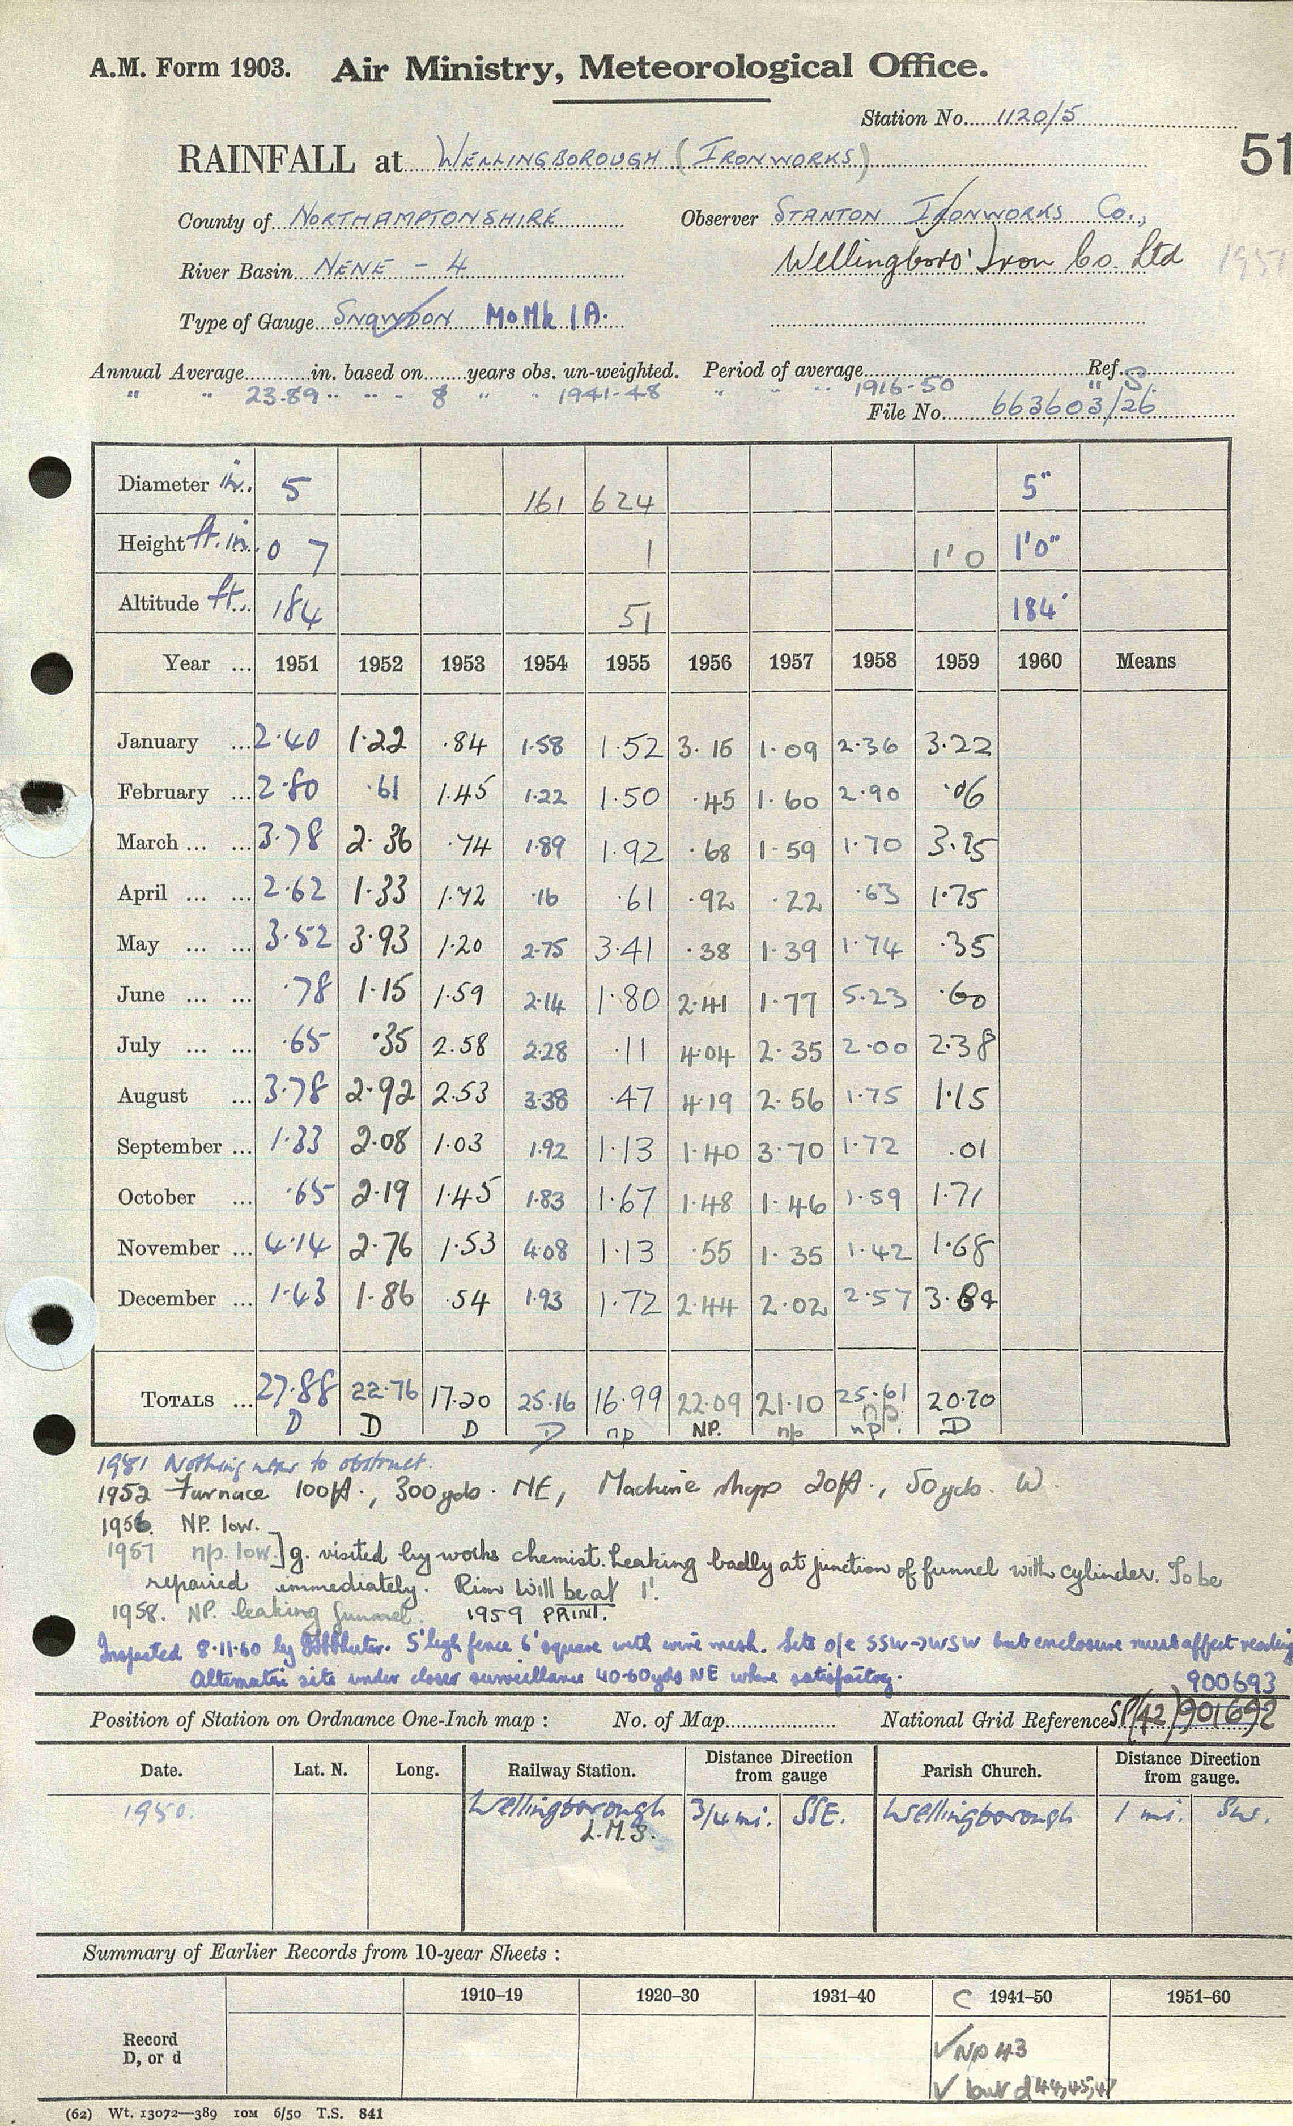 A.M. Form 1903. Air Ministry, Meteorological Office.
Station No. 1120/5
51
RAINFALL at WELLINGBOROUGH (IRONWORKS)
County of NORTHAMPTONSHIRE Observer STANTON IRONWORKS Co.,
River Basin NENE - 4 Wellingboro' Iron Co. Ltd 1951
Type of Gauge SNOWDON MO Mk 1A.
Annual Average in. based on years obs. un-weighted. Period of average Ref.
" " 23.89 " " - 8 " " 1941-48 " " " 1916-50 " S.
File No. 663603/26
Diameter in. 5 161 624 5"
Height ft. in. 0 7 1 1'0 1'0"
Altitude ft. 184 51 184'
Year ... 1951 1952 1953 1954 1955 1956 1957 1958 1959 1960 Means
January ... 2.40 1.22 .84 1.58 1.52 3.16 1.09 2.36 3.22
February ... 2.80 .61 1.45 1.22 1.50 .45 1.60 2.90 .06
March ... ... 3.78 2.36 .74 1.89 1.92 .68 1.59 1.70 3.95
April ... ... 2.62 1.33 1.72 .16 .61 .92 .22 .63 1.75
May ... ... 3.52 3.93 1.20 2.75 3.41 .38 1.39 1.74 .35
June ... ... .78 1.15 1.59 2.14 1.80 2.41 1.77 5.23 .60
July ... ... .65 .35 2.58 2.28 .11 4.04 2.35 2.00 2.38
August ... 3.78 2.92 2.53 3.38 .47 4.19 2.56 1.75 1.15
September ... 1.33 2.08 1.03 1.92 1.13 1.40 3.70 1.72 .01
October ... .65 2.19 1.45 1.83 1.67 1.48 1.46 1.59 1.71
November ... 4.14 2.76 1.53 4.08 1.13 .55 1.35 1.42 1.68
December ... 1.43 1.86 .54 1.93 1.72 2.44 2.02 2.57 3.84
TOTALS ... 27.88 22.76 17.20 25.16 16.99 22.09 21.10 25.61 20.70
D D D D np NP. np np. np. D
1951 Nothing near to obstruct.
1952 Furnace 100ft., 300yds. NE, Machine shops 20ft., 50yds. W.
1956. NP. low.
1957 np. low.] g. visited by works chemist. Leaking badly at junction of funnel with cylinder. To be
repaired immediately. Rim will be at 1'.
1958. NP. leaking funnel. 1959 PRINT.
Inspected 8.11.60 by 5' high fence 6' square with wire mesh. Site o/e SSW→WSW but enclosure must affect reading
Alternative site under closer surveillance 40-60yds NE where satisfactory.
900693
Position of Station on Ordnance One-Inch map : No. of Map National Grid Reference SP(42) 901692
Date. Lat. N. Long. Railway Station. Distance Direction from gauge Parish Church. Distance Direction from gauge.
1950. Wellingborough 3/4 mi. SSE. Wellingborough 1 mi. SW.
L.M.S.
Summary of Earlier Records from 10-year Sheets :
1910–19 1920–30 1931–40 C 1941–50 1951–60
Record
D, or d
✓ NP 43
✓ but d 44,45,47
(62) Wt. 13072—389 10M 6/50 T.S. 841